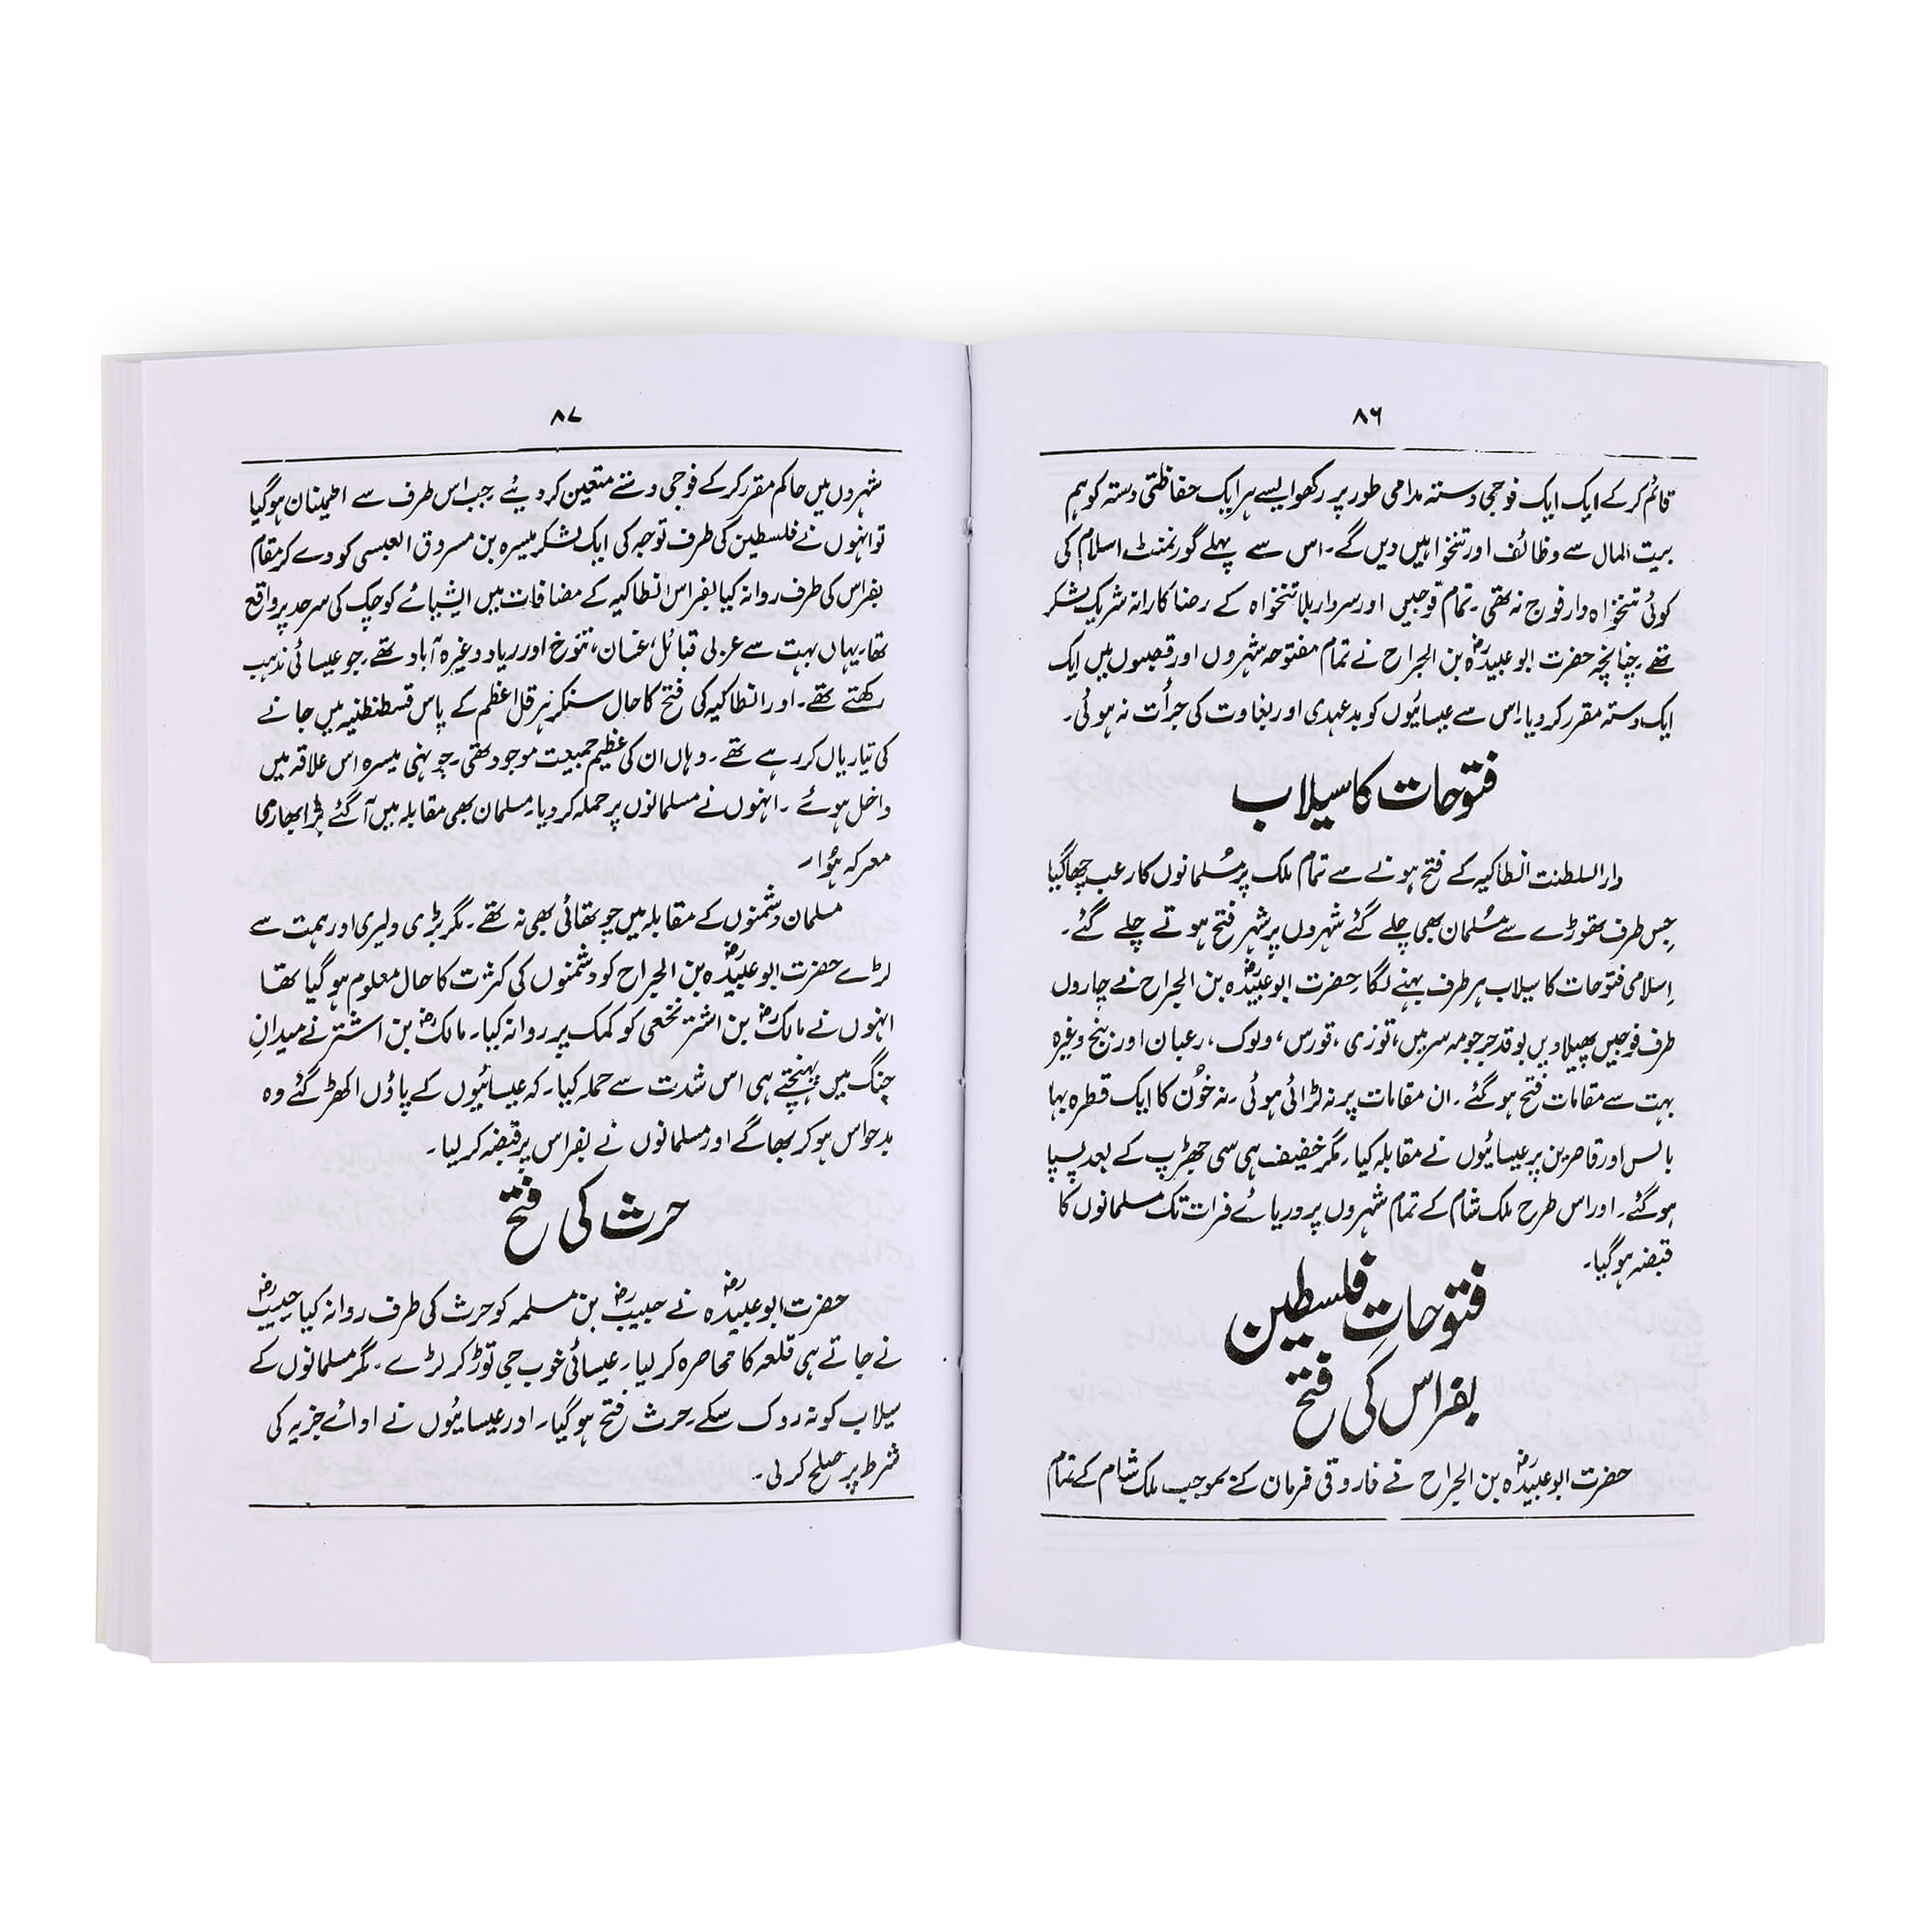 ۸۶
قائم کر کے ایک ایک فوجی دستہ مدامی طور پر رکھو ایسے ہر ایک حفاظتی دستہ کو ہم
بیت المال سے وظائف اور تنخواہیں دیں گے۔ اس سے پہلے گورنمنٹ اسلام کی
کوئی تنخواہ دار فوج نہ تھی۔ تمام فوجیں اور سردار بلا تنخواہ کے رضا کارانہ شریک لشکر
تھے۔ چنانچہ حضرت ابو عبیدہؓ بن الجراح نے تمام مفتوحہ شہروں اور قصبوں میں ایک
ایک دستہ مقرر کر دیا۔ اس سے عیسائیوں کو بدعہدی اور بغاوت کی جرأت نہ ہوئی۔
فتوحات کا سیلاب
دار السلطنت انطاکیہ کے فتح ہونے سے تمام ملک پر مُسلمانوں کا رعب چھا گیا
جِس طرف تھوڑے سے مُسلمان بھی چلے گئے شہروں پر شہر فتح ہوتے چلے گئے۔
اِسلامی فتوحات کا سیلاب ہر طرف بہنے لگا۔ حضرت ابو عبیدہؓ بن الجراح نے چاروں
طرف فوجیں پھیلا دیں بوقد جرجومہ سرمیں، توزی، قورس، دلوک، رعبان اور بنج وغیرہ
بہت سے مقامات فتح ہو گئے۔ ان مقامات پر نہ لڑائی ہوئی۔ نہ خُون کا ایک قطرہ بہا
بالس اور قاصرین پر عیسائیوں نے مقابلہ کیا۔ مگر خفیف ہی سی جھڑپ کے بعد پسپا
ہو گئے۔ اور اس طرح ملک شام کے تمام شہروں پر دریائے فرات تک مسلمانوں کا
قبضہ ہو گیا۔
فتوحاتِ فلسطین
بفراس کی فتح
حضرت ابو عبیدہؓ بن الجراح نے فاروقی فرمان کے بموجب ملک شام کے تمام
۸۷
شہروں میں حاکم مقرر کر کے فوجی دستے متعین کر دیئے۔ جب اس طرف سے اطمینان ہو گیا
تو انہوں نے فلسطین کی طرف توجہ کی ایک لشکر میسرہ بن مسروق العبسی کو دے کر مقام
بفراس کی طرف روانہ کیا بفراس انطاکیہ کے مضافات میں ایشیائے کوچک کی سرحد پر واقع
تھا۔ یہاں بہت سے عربی قبائل، غسان، تنوخ اور ریاد وغیرہ آباد تھے۔ جو عیسائی مذہب
رکھتے تھے۔ اور انطاکیہ کی فتح کا حال سنکر ہرقل اعظم کے پاس قسطنطنیہ میں جانے
کی تیاریاں کر رہے تھے۔ وہاں ان کی عظیم جمیعت موجود تھی۔ جونہی میسرہ اس علاقہ میں
داخل ہوئے۔ انہوں نے مسلمانوں پر حملہ کر دیا۔ مسلمان بھی مقابلہ میں آ گئے بڑا بھاری
معرکہ ہُوا۔
مسلمان دشمنوں کے مقابلہ میں چوتھائی بھی نہ تھے۔ مگر بڑی دلیری اور ہمت سے
لڑے حضرت ابو عبیدہؓ بن الجراح کو دشمنوں کی کثرت کا حال معلوم ہو گیا تھا
انہوں نے مالکؓ بن اشتر نخعی کو کمک پر روانہ کیا۔ مالکؓ بن اشتر نے میدانِ
جنگ میں پہنچتے ہی اس شدت سے حملہ کیا۔ کہ عیسائیوں کے پاؤں اکھڑ گئے وہ
بدحواس ہو کر بھاگے اور مسلمانوں نے بفراس پر قبضہ کر لیا۔
حرث کی فتح
حضرت ابو عبیدہؓ نے حبیبؓ بن مسلمہ کو حرث کی طرف روانہ کیا۔ حبیبؓ
نے جاتے ہی قلعہ کا محاصرہ کر لیا۔ عیسائی خوب جی توڑ کر لڑے۔ مگر مسلمانوں کے
سیلاب کو نہ روک سکے۔ حرث فتح ہو گیا۔ اور عیسائیوں نے ادائے جزیہ کی
شرط پر صلح کر لی۔